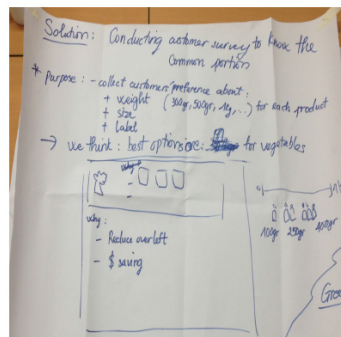 Solution: Conducting customer survey to know the
common portion
* Purpose: - collect customers' preference about:
+ weight (300gr, 500gr, 1kg, ..) for each product
+ size
+ label
→ we think: best options are: for vegetables
why:
- Reduce overleft
- $ saving
100gr 250gr 400gr